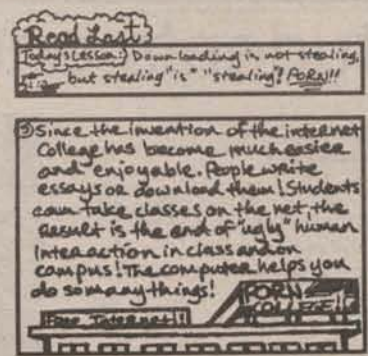 Read Last
Today's Lesson: Downloading is not stealing,
but stealing "is" "stealing"! PORN!!
③ Since the invention of the internet
College has become much easier
and enjoyable. People write
essays or download them! Students
can take classes on the net, the
result is the end of "ugly" human
interaction in class and on
campus! The computer helps you
do so many things!
PORN
COLLEGE!!
Free Internet!!